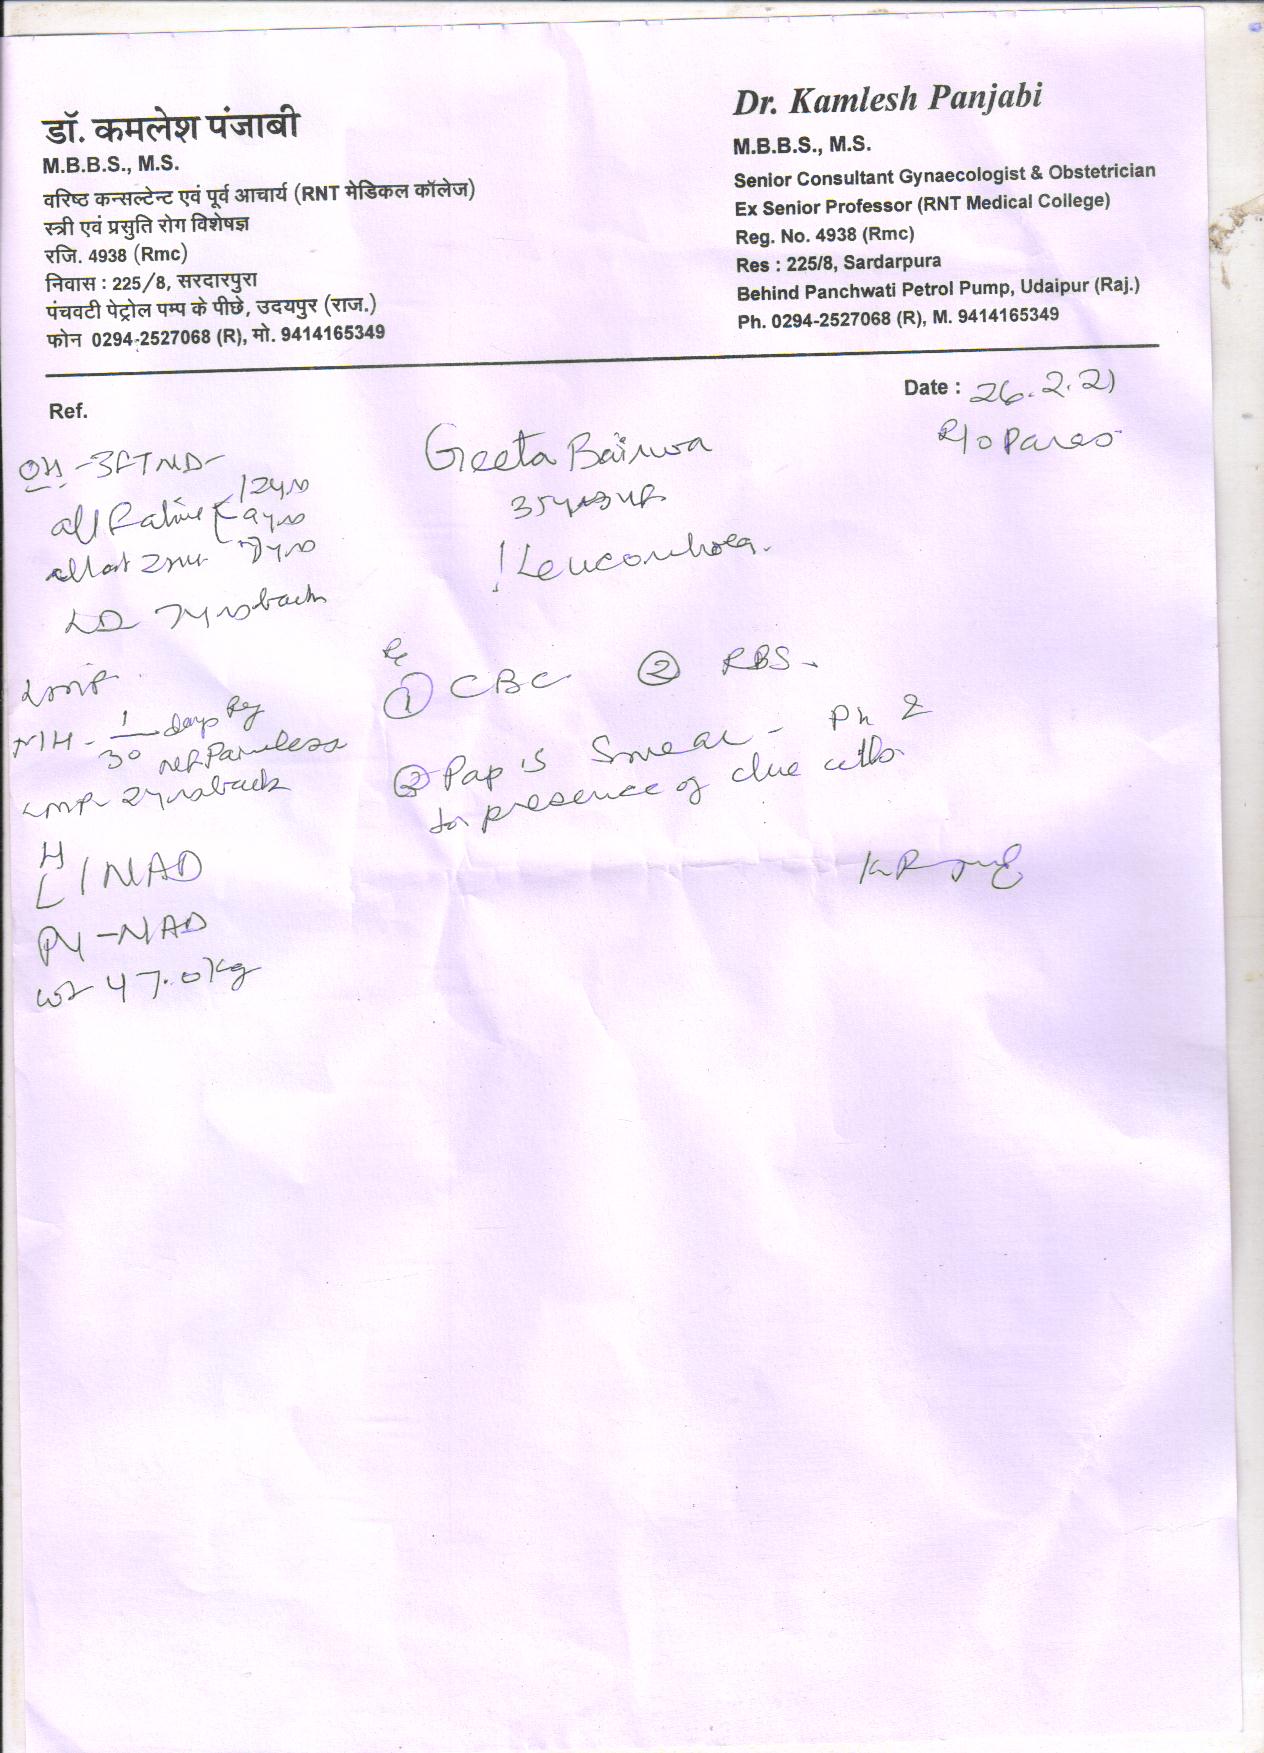 डॉ. कमलेश पंजाबी
M.B.B.S., M.S.
वरिष्ठ कन्सल्टेन्ट एवं पूर्व आचार्य (RNT मेडिकल कॉलेज)
स्त्री एवं प्रसुति रोग विशेषज्ञ
रजि. 4938 (Rmc)
निवास : 225/8, सरदारपुरा
पंचवटी पेट्रोल पम्प के पीछे, उदयपुर (राज.)
फोन 0294-2527068 (R), मो. 9414165349
Dr. Kamlesh Panjabi
M.B.B.S., M.S.
Senior Consultant Gynaecologist & Obstetrician
Ex Senior Professor (RNT Medical College)
Reg. No. 4938 (Rmc)
Res : 225/8, Sardarpura
Behind Panchwati Petrol Pump, Udaipur (Raj.)
Ph. 0294-2527068 (R), M. 9414165349
Ref.
Date : 26.2.21
R/o
Geeta Bairwa
35yrs
! Leucorrhoea.
OH - 3FTND -
all 12yrs
9yrs
7yrs
LD 7yrs back
LMP
M/H - 1/30 days Reg
Painless
LMP 2yrs back
H
L / NAD
PV - NAD
wt 47.0kg
Rx
① CBC ② RBS
③ Pap's Smear - Ph &
for presence of clue cells